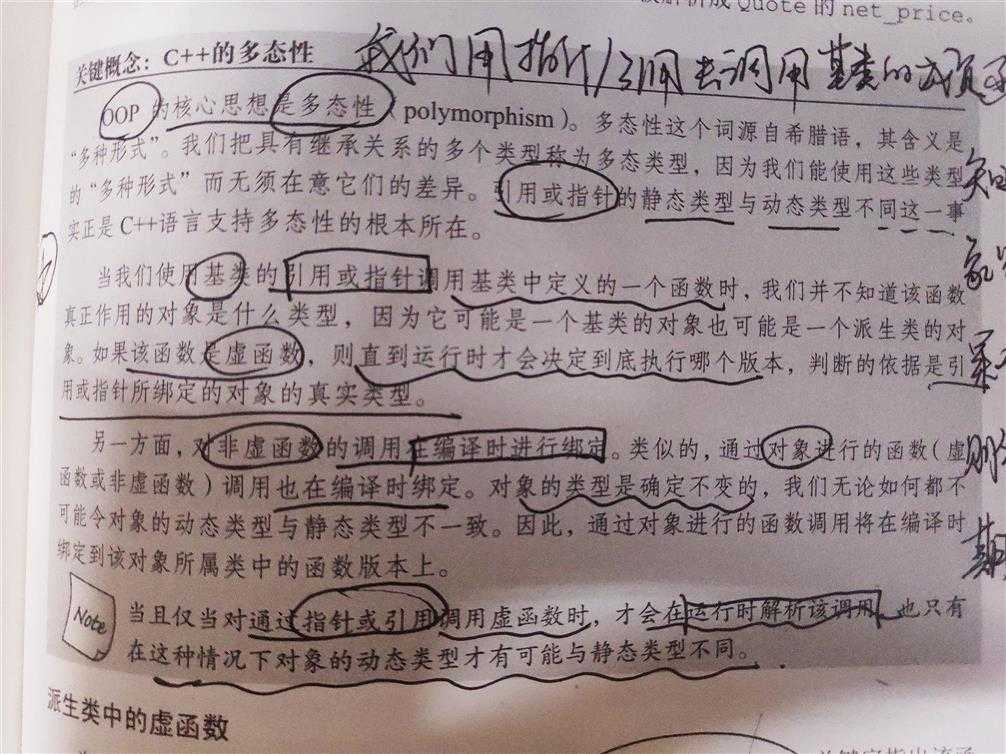 Quote 的 net_price。
关键概念：C++的多态性
我们用指针/引用去调用基类的
OOP 的核心思想是多态性（polymorphism）。多态性这个词源自希腊语，其含义是
“多种形式”。我们把具有继承关系的多个类型称为多态类型，因为我们能使用这些类型
的“多种形式”而无须在意它们的差异。引用或指针的静态类型与动态类型不同这一事
实正是 C++语言支持多态性的根本所在。
当我们使用基类的引用或指针调用基类中定义的一个函数时，我们并不知道该函数
真正作用的对象是什么类型，因为它可能是一个基类的对象也可能是一个派生类的对
象。如果该函数是虚函数，则直到运行时才会决定到底执行哪个版本，判断的依据是引
用或指针所绑定的对象的真实类型。
另一方面，对非虚函数的调用在编译时进行绑定。类似的，通过对象进行的函数（虚
函数或非虚函数）调用也在编译时绑定。对象的类型是确定不变的，我们无论如何都不
可能令对象的动态类型与静态类型不一致。因此，通过对象进行的函数调用将在编译时
绑定到该对象所属类中的函数版本上。
Note
当且仅当对通过指针或引用调用虚函数时，才会在运行时解析该调用，也只有
在这种情况下对象的动态类型才有可能与静态类型不同。
派生类中的虚函数